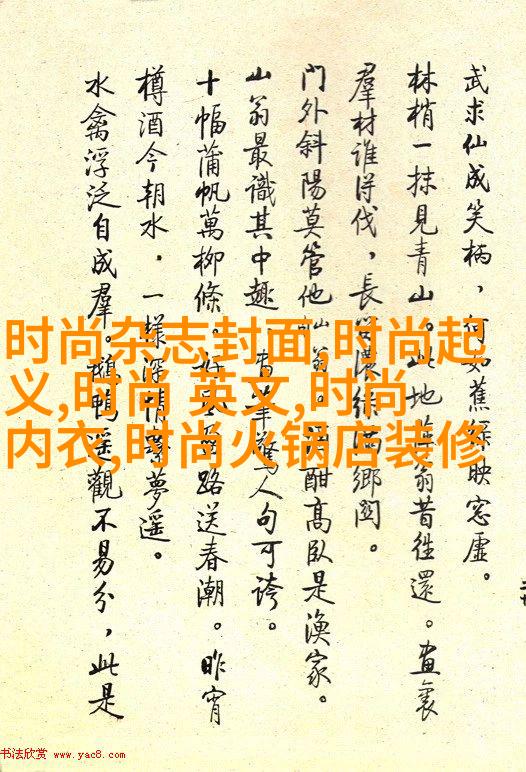 武求仙成笑柄，何如蕉綠映窓虛。
林梢一抹見青山。此地翁昔往還。畫裏
羣材誰得伐，長濃綠滿鄉関。
門外斜陽莫管他酣高臥是漁家。
山翁最識其中趣筆驚人句可誇。
十幅蒲帆萬柳條。好風路送春潮。昨宵
樽酒今朝水，一樣深情夢遥。
水禽浮泛自成羣。鴨遥觀不易分，此是
时尚杂志封面,时尚起
义,时尚 英文,时尚
内衣,时尚火锅店装修
书法欣赏 www.yac8.com